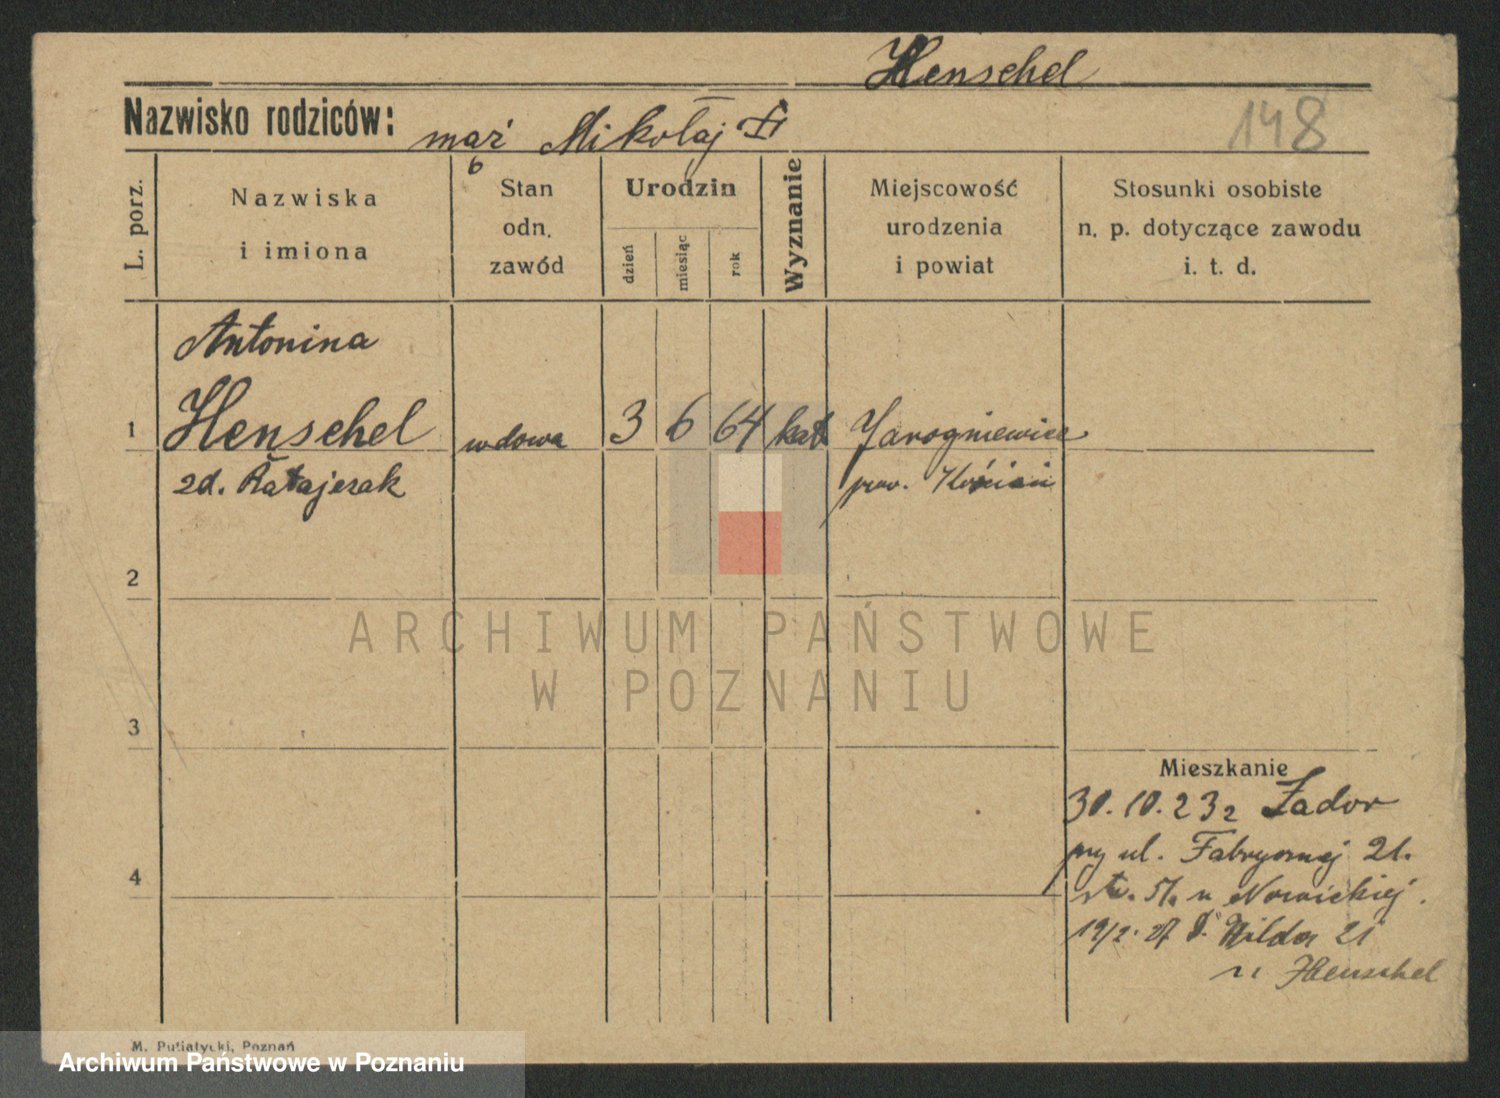 Henschel
Nazwisko rodziców: mąż Mikołaj
148
L. porz.
Nazwiska
i imiona
Stan
odn.
zawód
Urodzin
dzień
miesiąc
rok
Wyznanie
Miejscowość
urodzenia
i powiat
Stosunki osobiste
n. p. dotyczące zawodu
i. t. d.
Antonina
1 Henschel wdowa 3 6 64 kat Jarogniewice
zd. Ratajczak pow. Kościan
2
ARCHIWUM PAŃSTWOWE
W POZNANIU
3
Mieszkanie
30.10.23 z Żador
przy ul. Fabrycznej 21.
4
u Nowickiej.
Wilda 21
u Henschel
M. Putiatycki, Poznań
Archiwum Państwowe w Poznaniu